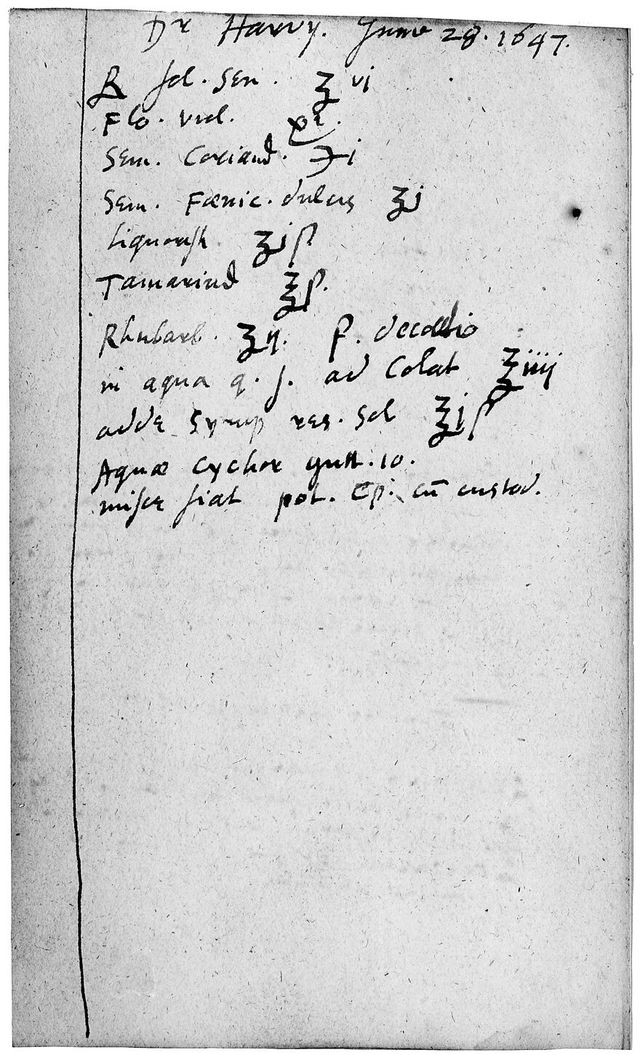 Dr Harvy. June 28. 1647.
℞ fol. Sen. ʒ vi
Flo. viol. pi.
Sem. Coriand. ℈i
Sem. Fœnic. dulcis ʒj
Liquorish ʒjß
Tamarind ℥ß.
Rhubarb. ʒij. f. decoctio
in aqua q. s. ad Colat ℥iiij
adde Syrup res. Sol ℥jß
Aquæ Cychor gutt. 10.
misce fiat pot. Cp. cū custod.